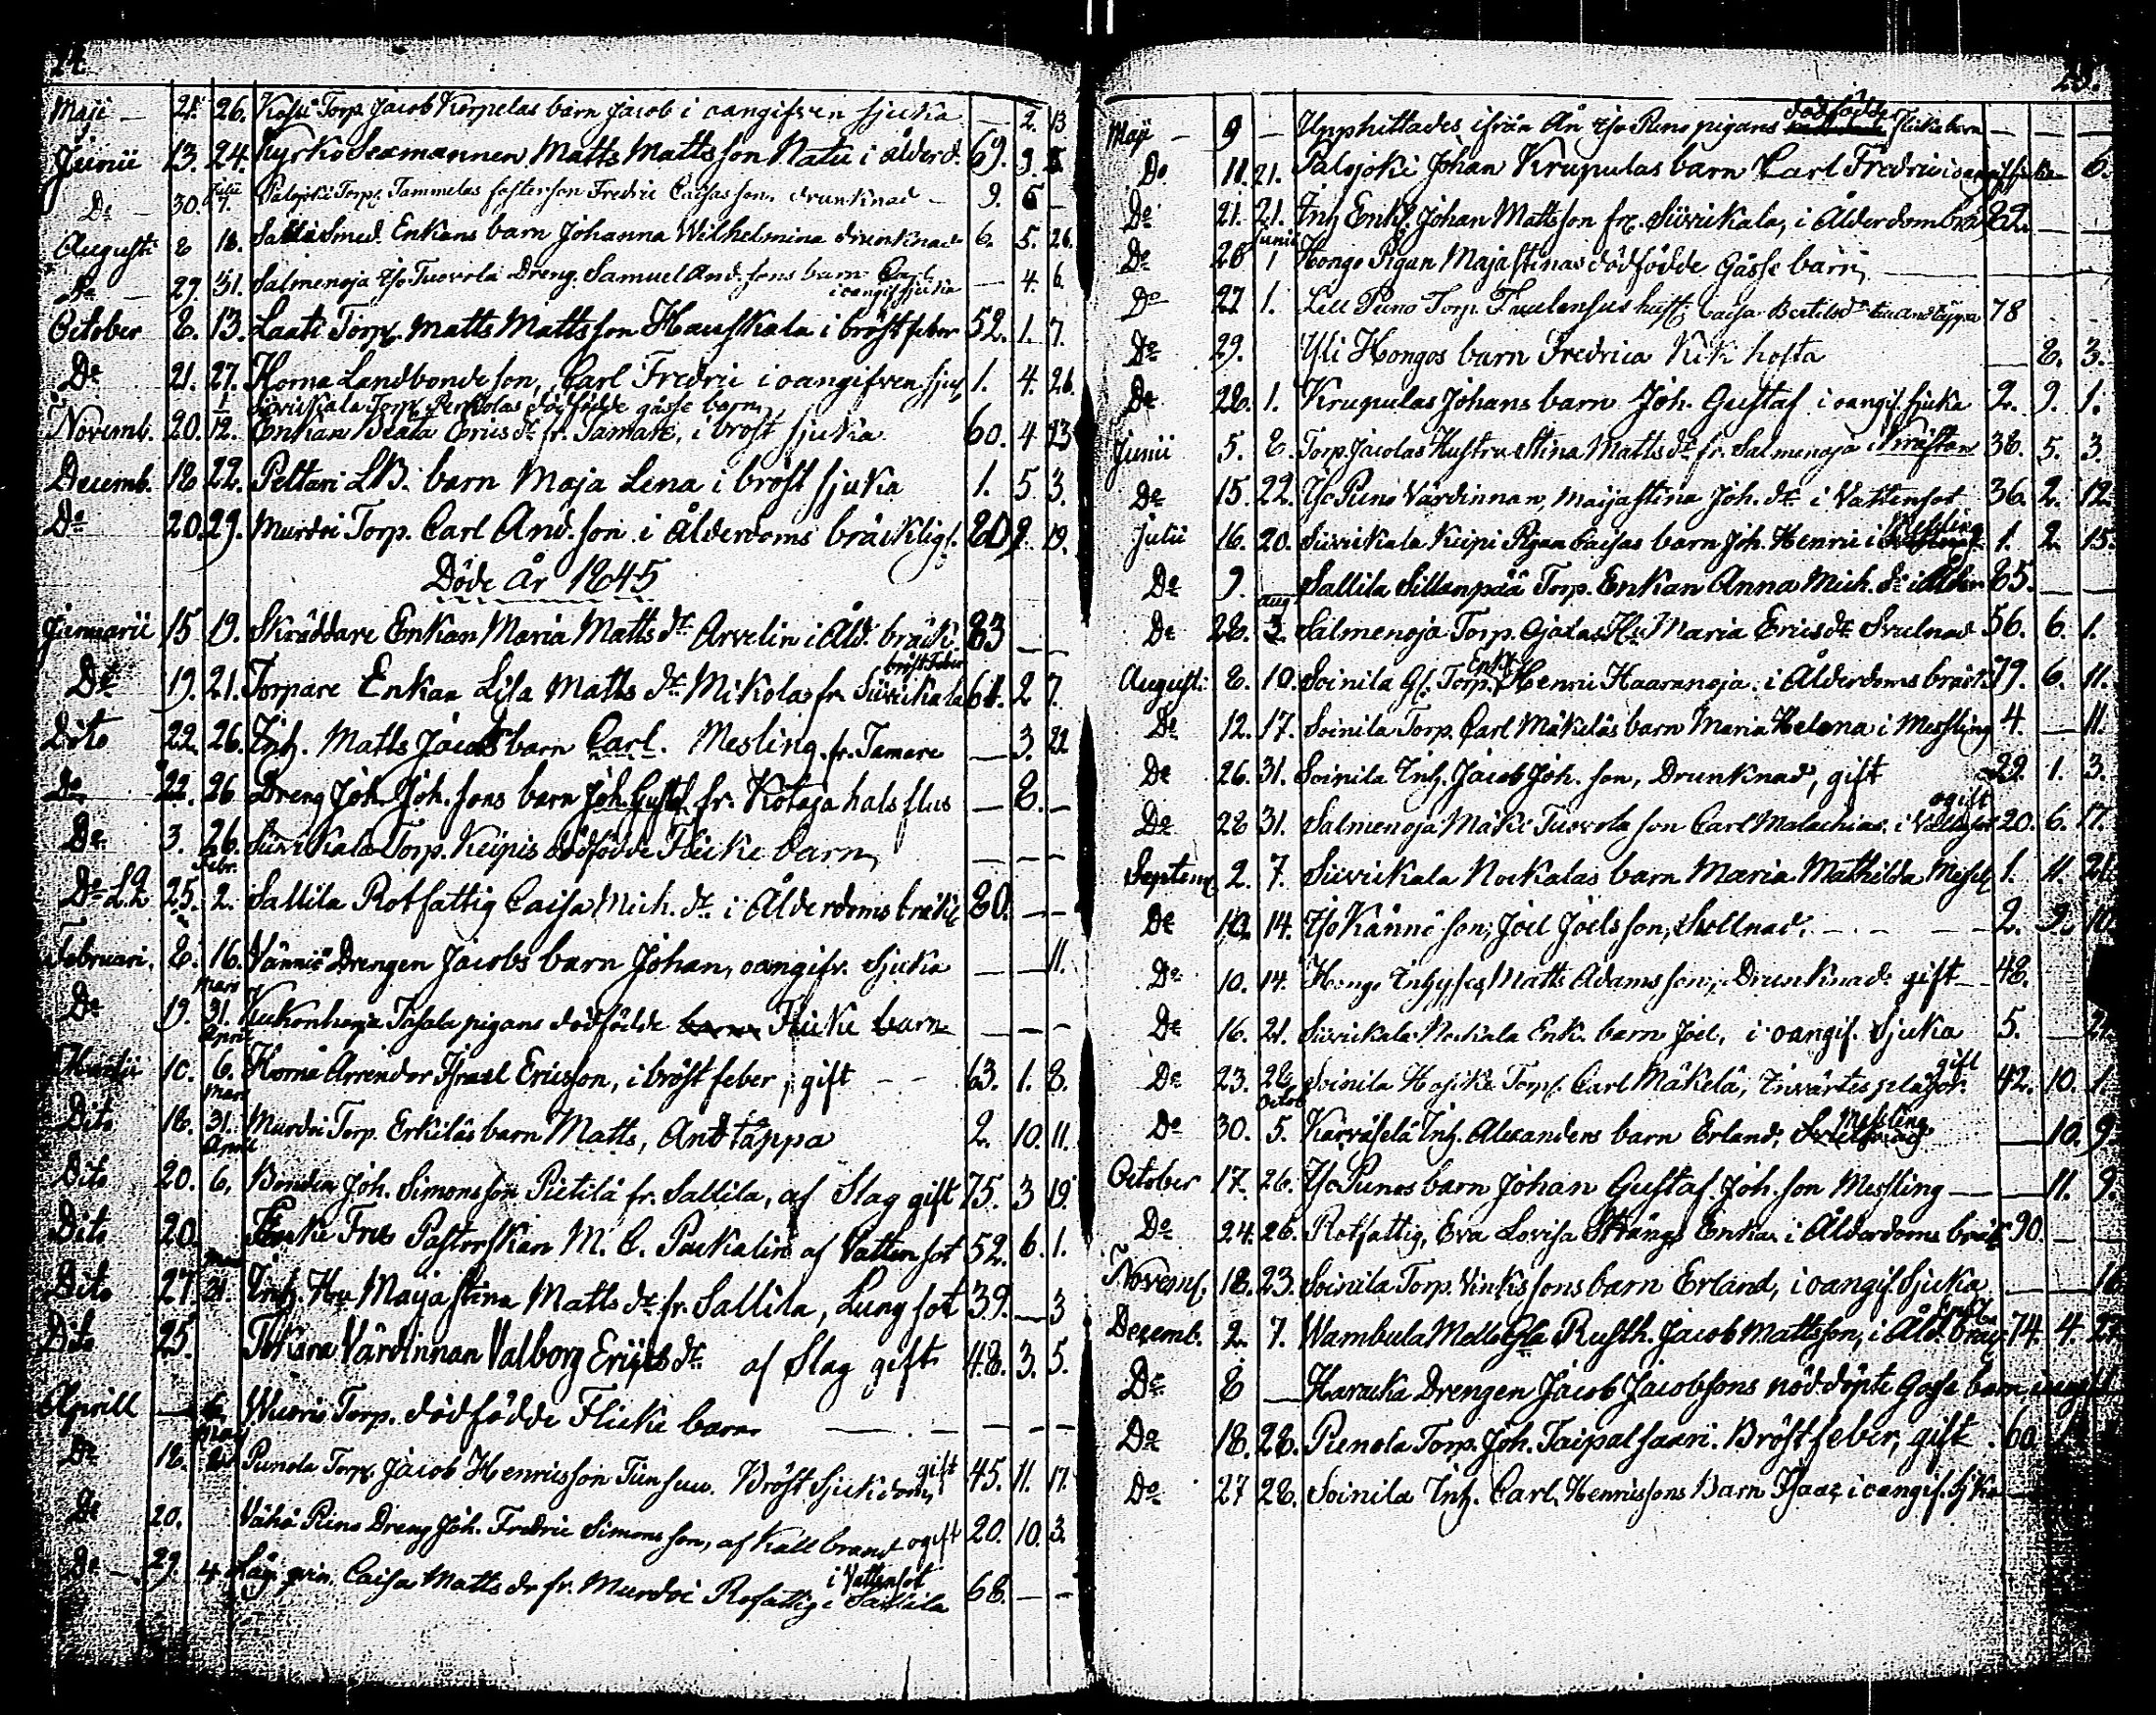 24.
Maji — 21. 26. Torp. Jacob Korpelas barn Jacob i oangifven sjuka — 2. 13
Junii 13. 24. Kyrko Sexmannen Matts Mattsson Natu i ålderd. 69. 9.
De — 30. Julii 7. Torp. Tammelas fosterson Fredric Caisasson. drunknad — 9. 6 —
Augusti 8 18. Smed. Enkans barn Johanna Wilhelmina drunknad 6. 5. 26.
De — 29. 31. Salmenoja Yso Tuovola Dreng. Samuel And. sons barn Carl i oangif. sjuka — 4. 6.
October 8. 13. Laati Torp. Matts Mattsson Hauskala i bröstfeber 52. 1. 7.
De 21. 27. Horna Landbonde son, Carl Fredric i oangifven sju 1. 4. 26.
1 Sirvikala Torp. Penkolas dödfödde gåsse barn
Novemb. 20. 12. Enkan Beata Erics dr fr. Tamare, i bröst sjuka 60. 4 23
Decemb. 18 22. Peltari LB. barn Maja Lena i bröst sjuka 1. 5 3.
De 20. 29. Murdoi Torp. Carl And. son i Ålderdoms bräcklig. 80 19.
Döde År 1845
Januarii 15 19. Skräddare Enkan Maria Matts dr Arvelin i Åld. bräck. 83 — —
De 19. 21. Torpare Enkan Lisa Matts dr Mikolas fr. Siivikala bröst feber 61. 2 7.
Dito 22. 26. Inh. Matts Jacobs barn Carl. Mesling. fr. Tamare — 3. 22
De 22. 26 Dreng Joh. Joh. sons barn Joh. Gustaf fr. Kotaja halsflus — 8. —
De 3. 26. Siivikala Torp. Keipis dödfödde Flicke barn — — —
De 25. Febr. 2. Sallila Rotfattig Caisa Mich. dr i Ålderdoms bräckl 80. — —
Februari. 8. 16. Vännie Drengen Jacobs barn Johan, oangifv. sjuka — — 11.
De 19. Mars 31. Kukonharja Tasala pigans dödfödde Flicke barn — — —
Martii 10. April 6. Horna Arrendor Israel Ericsson, i bröst feber, gift — — 63. 1. 8.
Dito 18. Mars 31. Murdoi Torp. Erkiläs barn Matts, Andtäppa 2. 10. 11.
Dito 20. April 6. Bonden Joh. Simonsson Pietilä fr. Sallila, af Slag gift 75. 3 19.
Dito 20. Enke Fru Pastorskan M. C. Paukalin af Vatten sot 52. 6. 1.
Dito 27. Mars 31. Inh. Hu Maija Stina Matts dr fr. Sallila, Lung sot 39. — 3
Dito 25. Värdinnan Valborg Erics dr af Slag gift 48. 3. 5.
Aprill — 6. Wuorio Torp. dödfödde Flicke barn — — — —
De 18. Maij Punola Torp. Jacob Henricsson Bröst Sjukdom, gift 45. 11. 17.
De 20. Vähä Piino Dreng Joh. Fredric Simonsson, af Kallbrand ogift 20. 10. 3.
De — 29. 4 Caisa Matts dr fr. Murdoi Rofattig i Sallila i Vattensot 68. — —
Maji — 9 — Upphittades ifrån Ån Yso Puno pigans dödfödde flicke barn — — —
De 11. 21. Palojoki Johan Krupulas barn Carl Fredric i oangif sjuka 6.
De 21. 21. Inh Enkl. Johan Mattsson fr. Siivikala, i Ålderdom bräc 82 — —
De 26 Junii 1 Hongo Pigan Maja Stinas dödfödde Gåsse barn —
De 27 1. Lill Puno Torp. hust. Caisa Bertilsdr andtäppa 78
De 29. Yli Hongos barn Fredrica Kikhosta — 8. 3.
De 28. 1. Krupulas Johans barn Joh. Gustaf i oangif. sjuka 2. 9. 1.
Junii 5. 8. Torp. Jacolas Hustru Stina Matts dr fr. Salmenoja i 38. 5. 3.
De 15. 22. Yso Puno Värdinnan, Maijastina Joh. dr i Vattensot 36. 2. 12.
Julii 16. 20. Siivikala Keipi Pigan Caisas barn Joh. Henric i Messling 1. 2. 15.
De 9. — Sallila Sillanpää Torp. Enkan Anna Mich. dr i Ålder 85. — —
De 28. Aug 3. Salmenoja Torp. Ojalas Hu Maria Erics dr Svulnad 56. 6. 1.
Augusti 8. 10. Soinila Gl. Torp. Enkl. Henric Haaranoja i Ålderdoms bräck 79. 6. 11.
De 12. 17. Soinila Torp. Carl Mäkeläs barn Maria Helena i Messling 4. — 11.
De 26. 31. Soinila Inh. Jacob Joh. son, Drunknad, gift 29. 1. 3.
De 28 31. Salmenoja Mäki Tuovola son Carl Malachias. i Vattusot ogift 20. 6. 17.
Septem 2. 7. Siivikala Nockalas barn Maria Mathilda Messl. 1. 11. 26.
De 10 14. Yso Kännö son, Joel Joelsson, Svullnad, — — 2. 9. 10.
De 10. 14. Hongo Inhyses, Matts Adamsson, Drunknade gift — 48.
De 16. 21. Siivikala Nockala Enk. barn Joel, i oangif. Sjuka 5. — 24.
De 23. 28 Soinila Hosike Torp. Carl Mäkelä, Invärtes plågor. gift 42. 10. 1.
De 30. Octob 5. Karvaselä Inh. Alexanders barn Erland, Messling — 10. 9
October 17. 26. Yso Punos barn Johan Gustaf Joh. son Messling — — 11. 9.
De 24. 26. Rotfattig, Eva Lovisa Stång, Enka i Ålderdoms bräck 90. — —
Novemb. 18. 23. Soinila Torp. Vinkissons barn Erland, i oangif. Sjuka — — 16
Decemb. 2. 7. Wambula Mello Gla Rusth. Jacob Mattsson, i Åld. bräck Enkl. 74. 4. 27.
De 8 — Haraka Drengen Jacob Jacobssons nöddöpte Gosse barn
De 18. 28. Punola Torp. Joh. Taipalsaari. Bröstfeber, gift 60.
De 27 28. Soinila Inh. Carl. Henricssons Barn Isaac i oangif. Sjka —